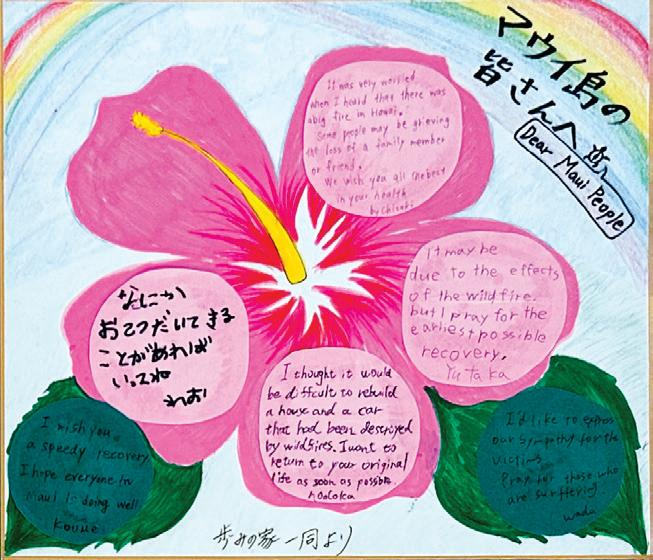 マウイ島の
皆さんへ
Dear Maui People
It was very worried
when I heard that there was
a big fire in Hawai.
Some people may be grieving
the loss of a family member
or friend.
We wish you all the best
in your health
by Chisaki
It may be
due to the effects
of the wildfire.
but I pray for the
earliest possible
recovery.
Yutaka
なにか
おてつだいできる
ことがあれば
いってね
れお
I thought it would
be difficult to rebuild
a house and a car
that had been destroyed
by wildfires. I want to
return to your original
life as soon as possible.
I wish you
a speedy recovery
I hope everyone in
Maui is doing well
Koume
I'd like to express
our sympathy for the
victims.
Pray for those who
are surffering.
wada
歩みの家一同より